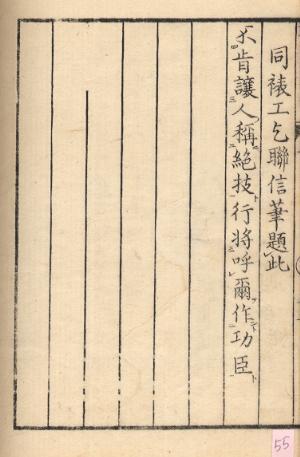 同裱工乞聯信筆題此
不肯讓人稱絕技行將呼爾作功臣
55